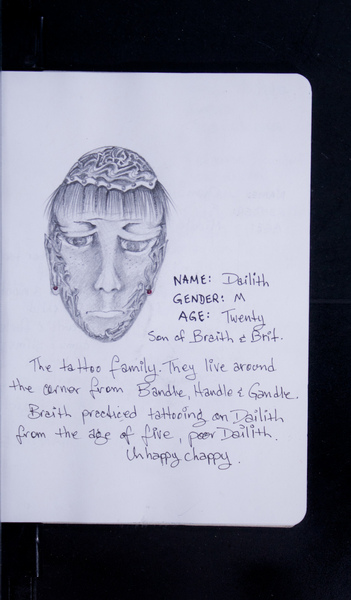 NAME: Dailith
GENDER: M
AGE: Twenty
Son of Braith & Brit.
The tattoo family. They live around
the corner from Bandke, Handke & Gandke.
Braith practiced tattooing on Dailith
from the age of five, poor Dailith.
Unhappy chappy.